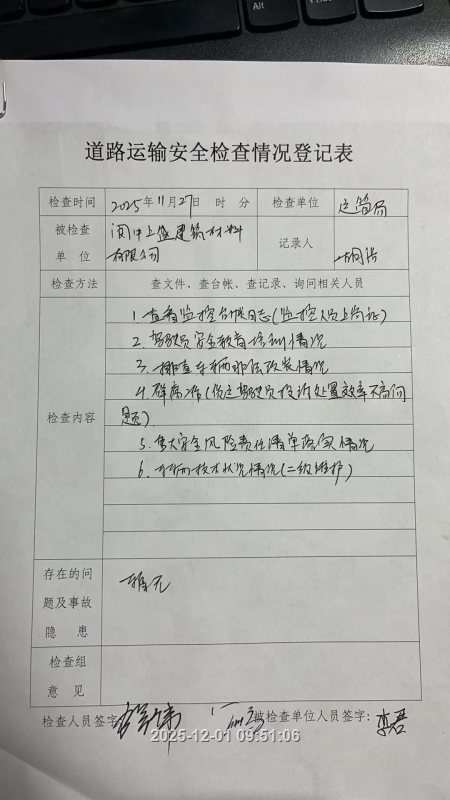 Alt
道路运输安全检查情况登记表
检查时间 2025年11月27日 时 分 检查单位 运管局
被检查 阆中上盛建筑材料 记录人
单 位 有限公司
检查方法 查文件、查台帐、查记录、询问相关人员
检查内容
1. 查看监控台帐日志(监控人员上岗证)
2. 驾驶员安全教育培训情况
3. 排查车辆非法改装情况
4. (货运驾驶员投诉处置效率不高问
题)
5. 重大安全风险责任清单落实情况
6. 车辆技术状况情况(二级维护)
存在的问
题及事故 暂无
隐 患
检查组
意 见
检查人员签字: 被检查单位人员签字:
2025-12-01 09:51:06